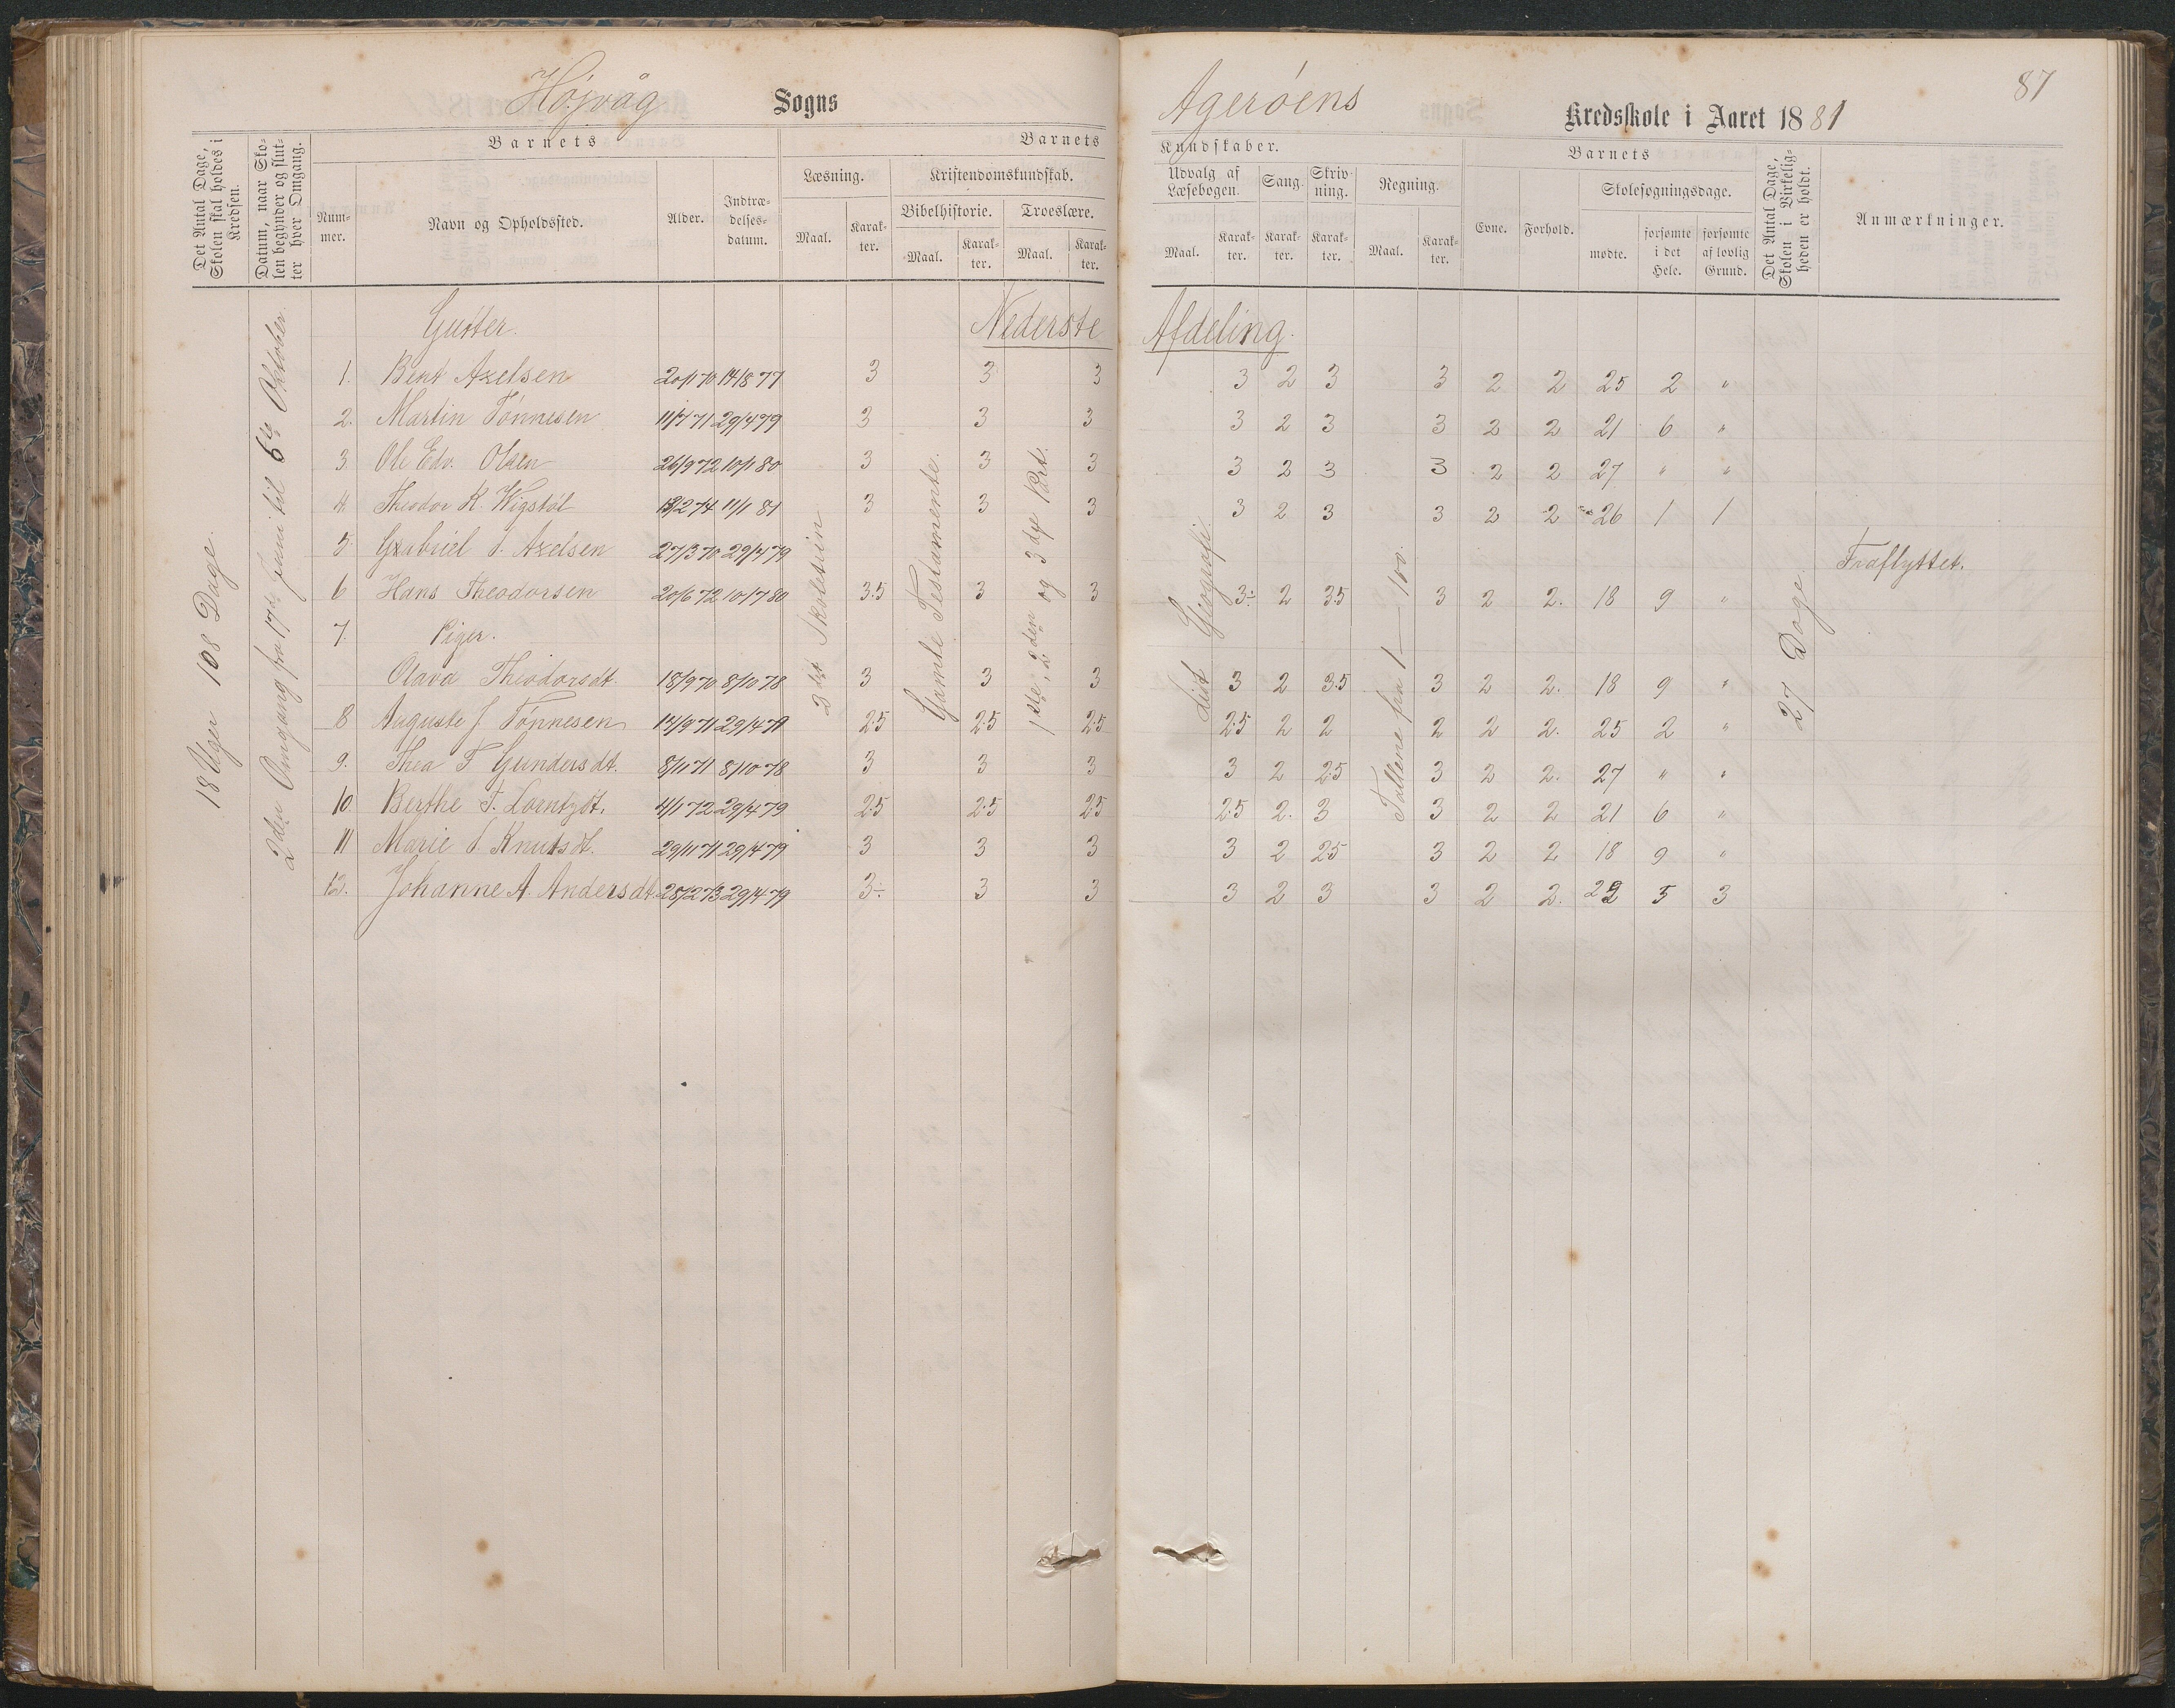 Højvåg Sogns
Agerøens Kredsskole i Aaret 1881
87
Det Antal Dage, Skolen skal holdes i Kredsen.
Datum, naar Skolen begynder og slutter hver Omgang.
Barnets
Nummer.
Navn og Opholdssted.
Alder.
Indtrædelsesdatum.
Barnets
Læsning.
Maal.
Karakter.
Kristendomskundskab.
Bibelhistorie.
Maal.
Karakter.
Troeslære.
Maal.
Karakter.
Kundskaber.
Udvalg af Læsebogen.
Maal.
Karakter.
Sang.
Karakter.
Skrivning.
Karakter.
Regning.
Maal.
Karakter.
Barnets
Evne.
Forhold.
Skolesøgningsdage.
mødte.
forsømte i det Hele.
forsømte af lovlig Grund.
Det Antal Dage, Skolen i Virkeligheden er holdt.
Anmærkninger.
18 Uger 108 Dage.
2den Omgang fra 17de juni til 6te Oktober.
2det Skoletrin
Gamle Testamente.
1ste, 2den og 3die Part.
Lidt Geografi.
Tallene fra 1 – 100.
27 Dage.
Gutter. Nederste Afdeling.
1. Bent Axelsen 20/1 70 14/8 77 3 3 3 3 2 3 3 2 2 25 2 "
2. Martin Tønnesen 11/7 71 29/4 79 3 3 3 3 2 3 3 2 2 21 6 "
3. Ole Edv. Olsen 26/9 72 10/1 80 3 3 3 3 2 3 3 2 2 27 " "
4. Theodor K. Wigstøl 13/2 74 11/1 81 3 3 3 3 2 3 3 2 2 26 1 1
5. Gabriel S. Axelsen 27/3 70 29/4 79 Fraflyttet.
6 Hans Theodorsen 20/6 72 10/7 80 3.5 3 3 3÷ 2 3.5 3 2 2. 18 9 "
7. Piger.
Olava Theodorsdt. 18/9 70 8/10 78 3 3 3 3 2 3.5 3 2 2. 18 9 "
8 Auguste J. Tønnesen 14/9 71 29/4 79 2.5 2.5 2.5 2.5 2 2 2 2 2. 25 2 "
9. Thea T. Gundersdt. 8/11 71 8/10 78 3 3 3 3 2 2.5 3 2 2. 27 " "
10. Berthe T. Lorntzdt. 4/1 72 29/4 79 2.5 2.5 2.5 2.5 2. 3 3 2 2 21 6 "
11 Marie S. Knutsdt. 29/11 71 29/4 79 3 3 3 3 2 2.5 3 2 2 18 9 "
12. Johanne A. Andersdt. 28/2 73 29/4 79 3÷ 3 3 3 2 3 3 2 2. 22 5 3